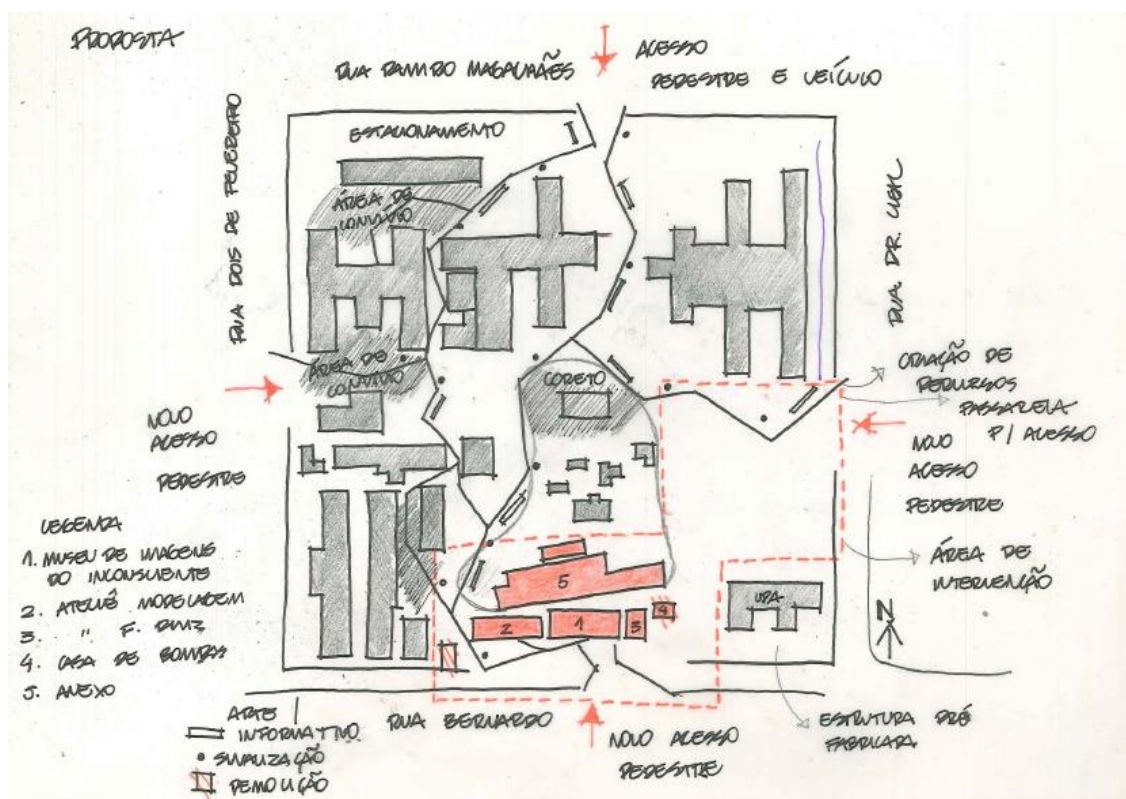 PROPOSTA
RUA RAMIRO MAGALHÃES
ACESSO
PEDESTRE E VEÍCULO
RUA DOIS DE FEVEREIRO
ESTACIONAMENTO
ÁREA DE
CONVÍVIO
RUA DR. LEAL
ÁREA DE
CONVÍVIO
CORETO
CRIAÇÃO DE
PERCURSOS
PASSARELA
P/ ACESSO
NOVO
ACESSO
PEDESTRE
NOVO
ACESSO
PEDESTRE
ÁREA DE
INTERVENÇÃO
LEGENDA
1. MUSEU DE IMAGENS
DO INCONSCIENTE
2. ATELIÊ MODELAGEM
3. " F. DINIZ
4. CASA DE BOMBAS
5. ANEXO
5
2
1
3
4
UPA
N
ARTE
INFORMATIVO
SINALIZAÇÃO
DEMOLIÇÃO
RUA BERNARDO
NOVO ACESSO
PEDESTRE
ESTRUTURA PRÉ
FABRICADA